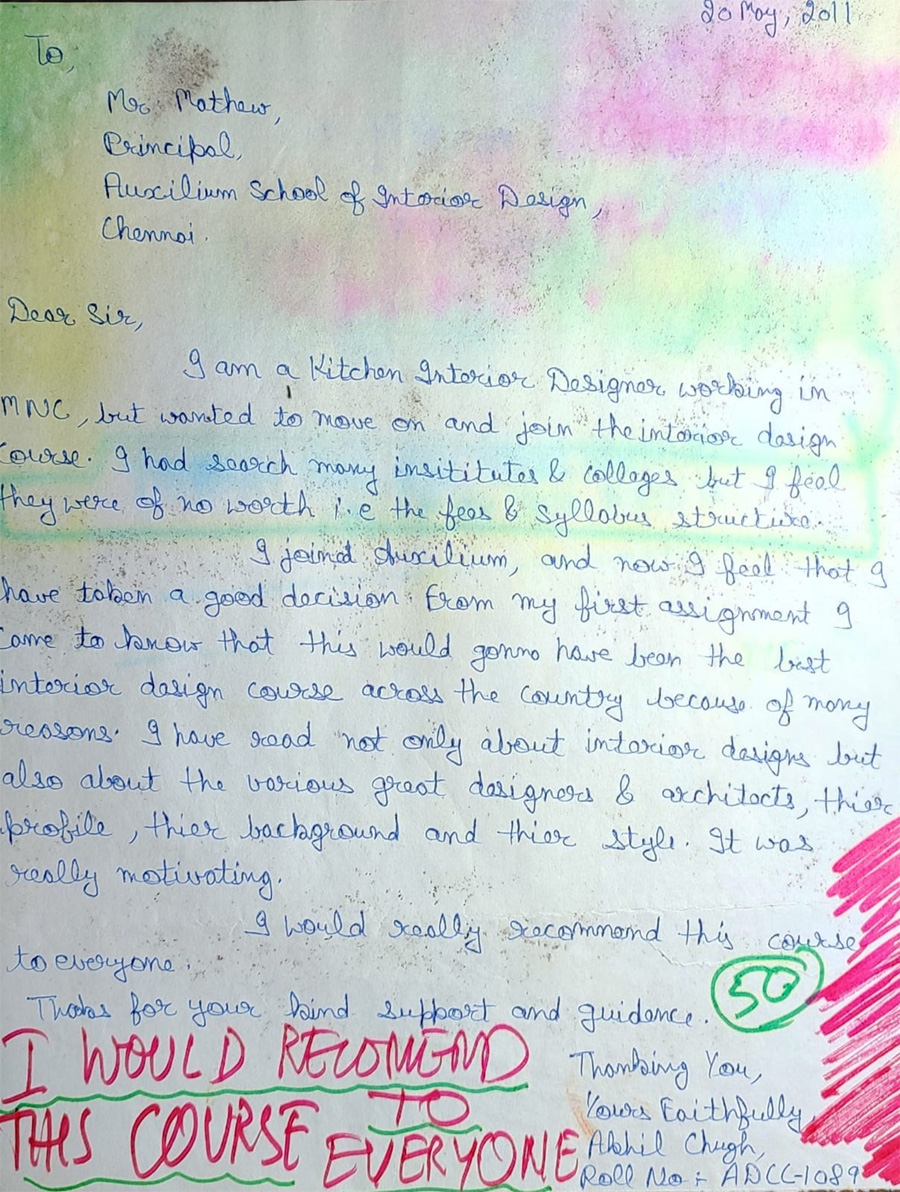 20 May, 2011
To,
Mr. Mathew,
Principal,
Auxilium School of Interior Design,
Chennai.
Dear Sir,
I am a Kitchen Interior Designer working in
MNC, but wanted to move on and join the interior design
course. I had search many insititutes & colleges but I feel
they were of no worth i.e the fees & syllabus structure.
I joined Auxilium, and now I feel that I
have taken a good decision. From my first assignment I
came to know that this would gonna have been the best
interior design course across the country because of many
reasons. I have read not only about interior designs but
also about the various great designers & architects, thier
profile, thier background and thier style. It was
really motivating.
I would really recommend this course
to everyone.
Thanks for your kind support and guidance.
50
I WOULD RECOMEND
THIS COURSE TO
EVERYONE
Thanking You,
Yours Faithfully,
Akhil Chugh,
Roll No:- ADCC-1089